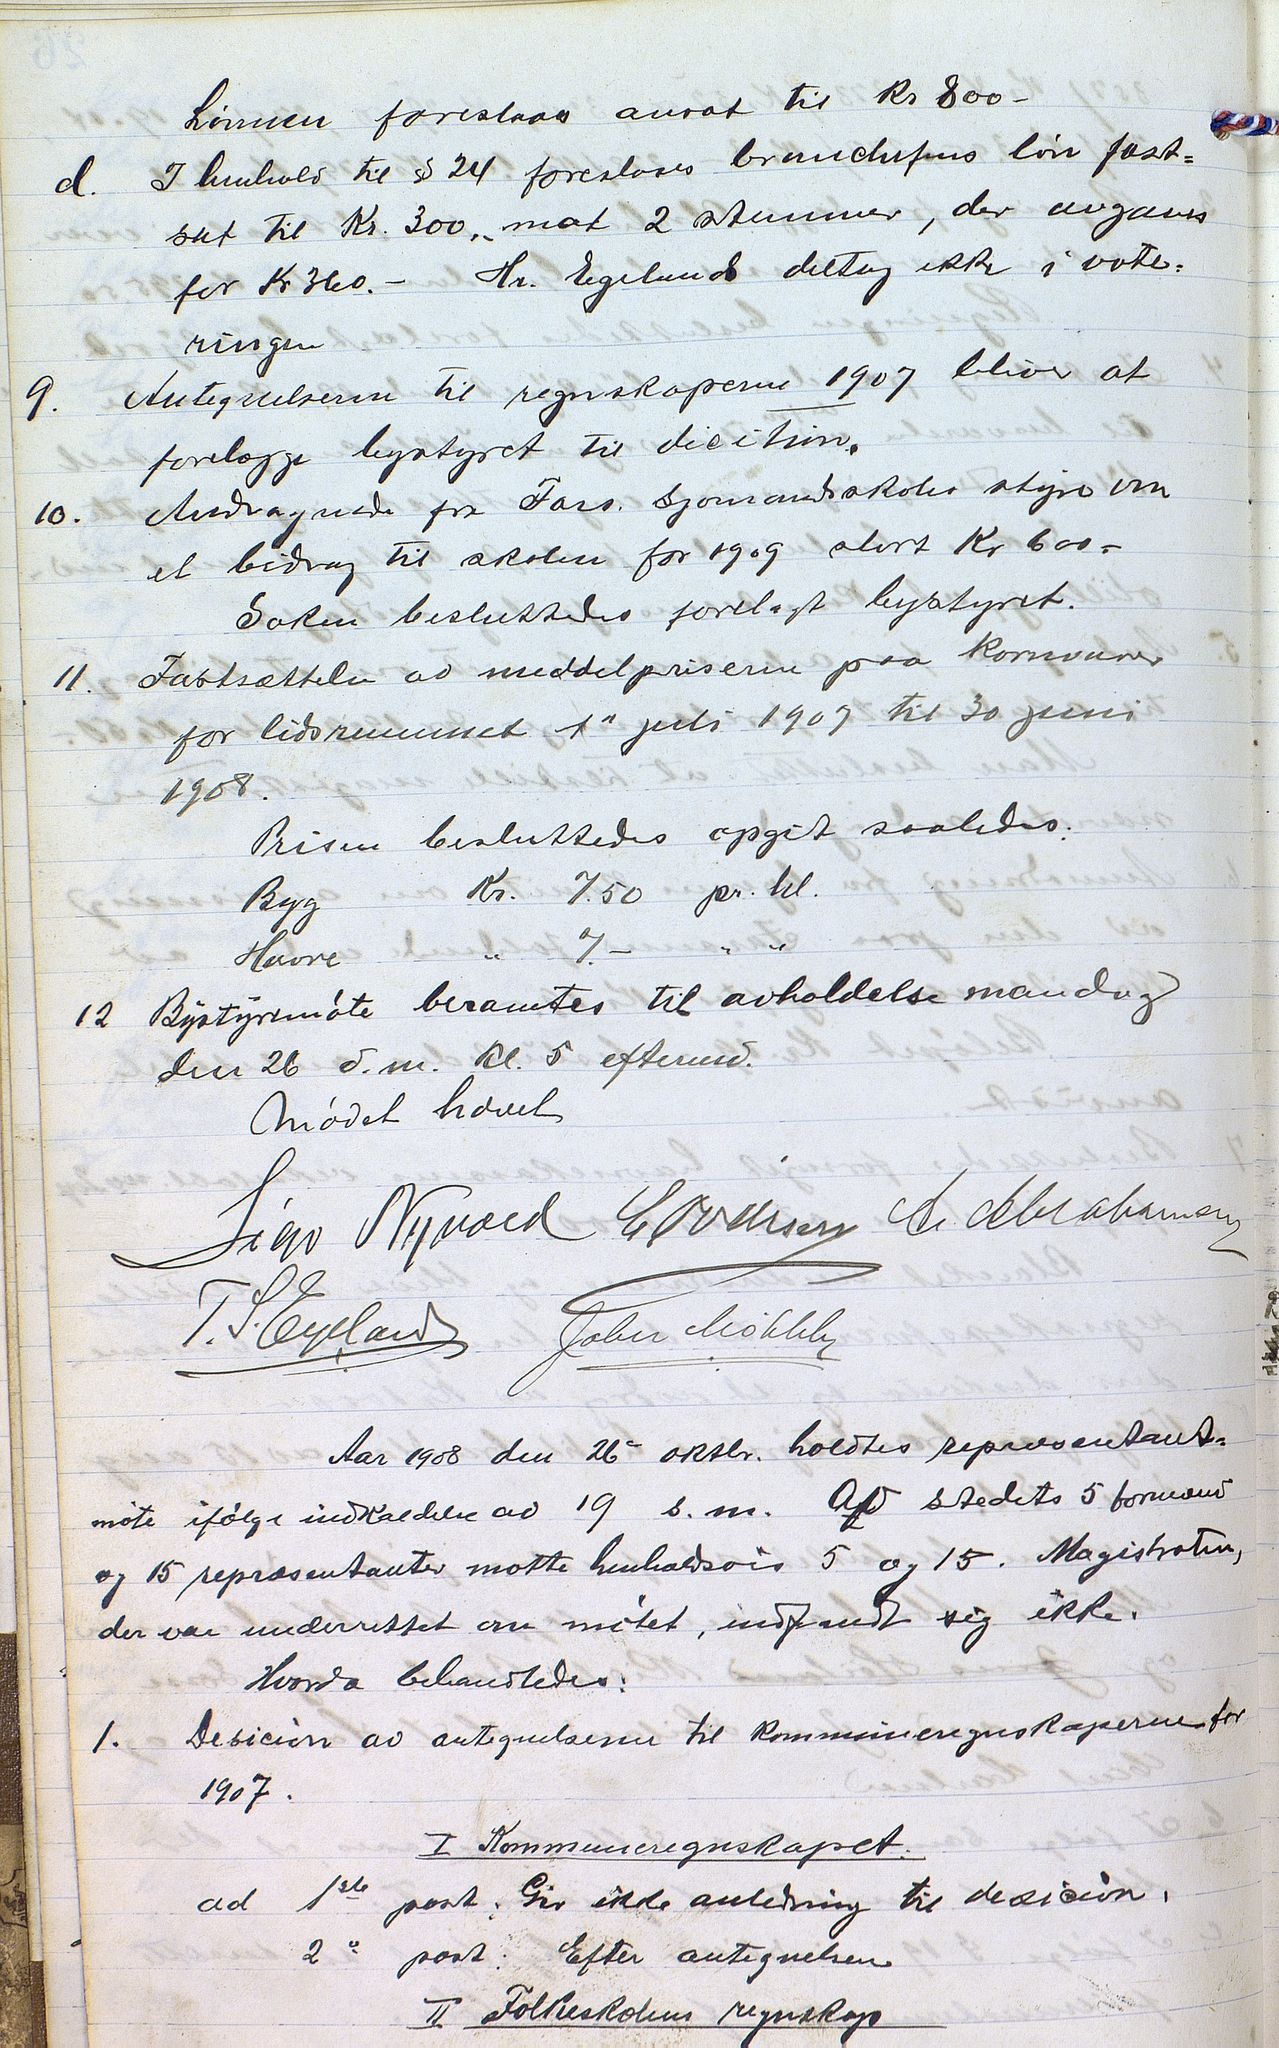 Lønnen foreslaaes ansat til Kr 800-
d. I henhold til § 24 foreslaaes brandchefens løn fast=
sat til Kr. 300,- mot 2 stemmer, der avgaves
for Kr 360.- Hr. Egeland deltog ikke i vote-
ringen
9. Antegnelserne til regnskaperne 1907 bliver at
forelægge bystyret til dicition.
10. Andragende fra Fars. Sjømandsskoles styre om
et bidrag til skolen for 1909 stort Kr 600-
Saken besluttedes forelagt bystyret.
11. Fastsættelse av meddelpriserne paa Kornvarer
for tidsrummet 1" juli 1907 til 30 juni
1908.
Prisen besluttedes opgit saaledes:
Byg Kr. 7.50 pr. hl.
Havre " 7.- " "
12 Bystyremøte beramtes til avholdelse mandag
den 26 d.m. Kl. 5 efterm.
Mødet hævet
Sigv Nyvold A. Abrahamsen
T. S. Egeland John
Aar 1908 den 26- oktbr. holdtes repræsentant-
møte ifølge indkaldelse av 19 s.m. Af stedets 5 formænd
og 15 repræsentanter møtte henholdsvis 5 og 15. Magistraten,
der var underrettet om møtet, indfandt sig ikke.
Hvorda behandledes:
1. Desicion av antegnelserne til kommuneregnskaperne for
1907.
I Kommuneregnskapet.
ad 1ste post: Gir ikke anledning til desicion.
2" post: Efter antegnelsen
II Folkeskolens regnskap